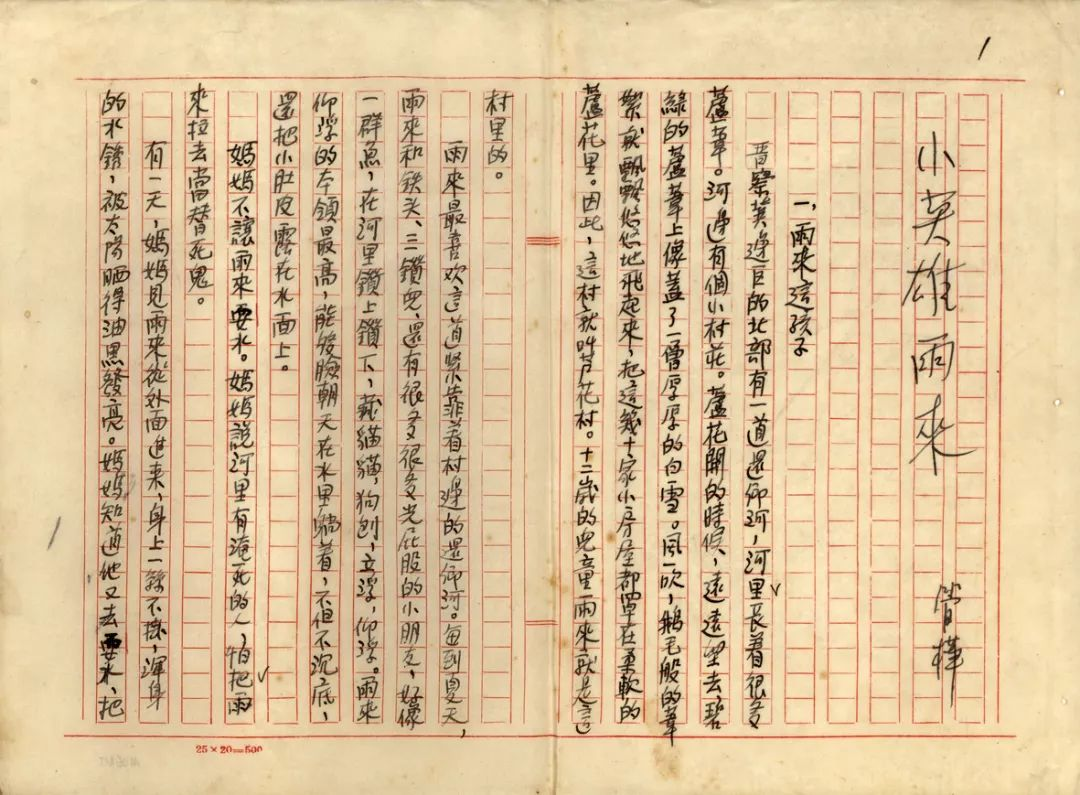 1
小英雄雨來
管樺
一，雨來這孩子
晋察冀邊区的北部有一道還鄉河，河里長着很多
蘆葦。河邊有個小村莊。蘆花開的時候，遠遠望去，碧
綠的蘆葦上像蓋了一層厚厚的白雪。風一吹，鵝毛般的葦
絮就飄飄悠悠地飛起來，把這幾十家小房屋都罩在柔軟的
蘆花里。因此，這村就叫芦花村。十二歲的兒童雨來就是這
村里的。
雨來最喜欢這道緊靠着村邊的還鄉河。每到夏天，
雨來和鉄头、三鑽兒、還有很多很多光屁股的小朋友，好像
一群魚，在河里鑽上鑽下，藏貓貓，狗刨，立浮，仰浮。雨來
仰浮的本領最高，能够臉朝天在水里躺着，不但不沉底，
還把小肚皮露在水面上。
媽媽不讓雨來耍水。媽媽說河里有淹死的人，怕把雨
來拉去當替死鬼。
有一天，媽媽見雨來從外面進来，身上一絲不掛，渾身
的水銹，被太陽晒得油黑發亮。媽媽知道他又去耍水，把
25×20=500